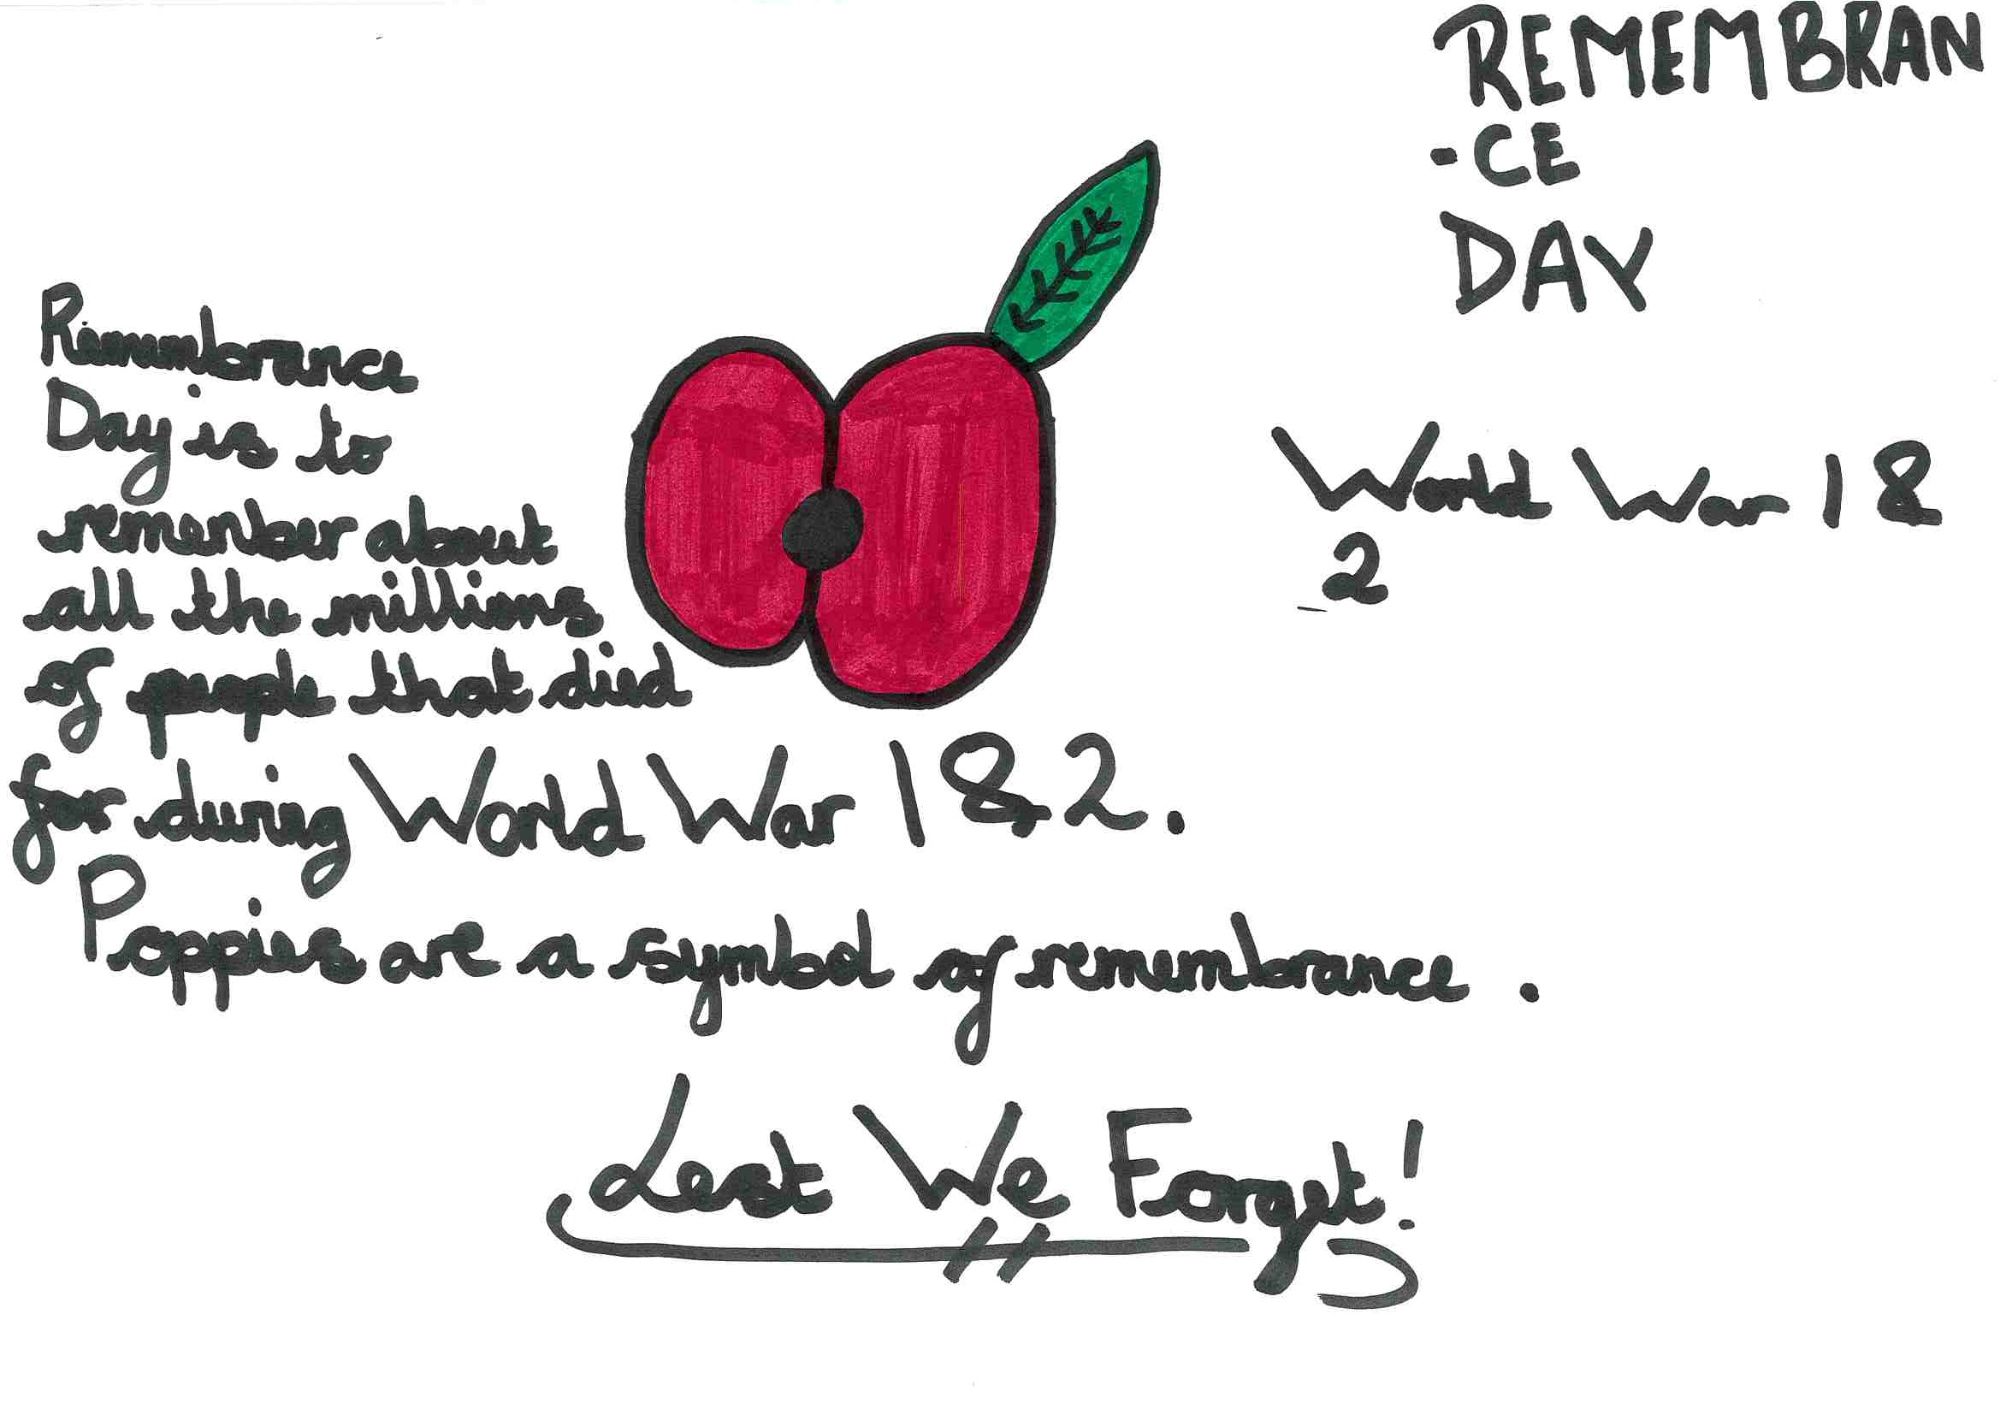 REMEMBRAN
-CE
DAY
Remembrance
Day is to
remember about
all the millions
of people that died
for during World War 1 & 2.
Poppies are a symbol of remembrance.
World War 1 &
2
Lest We Forget!